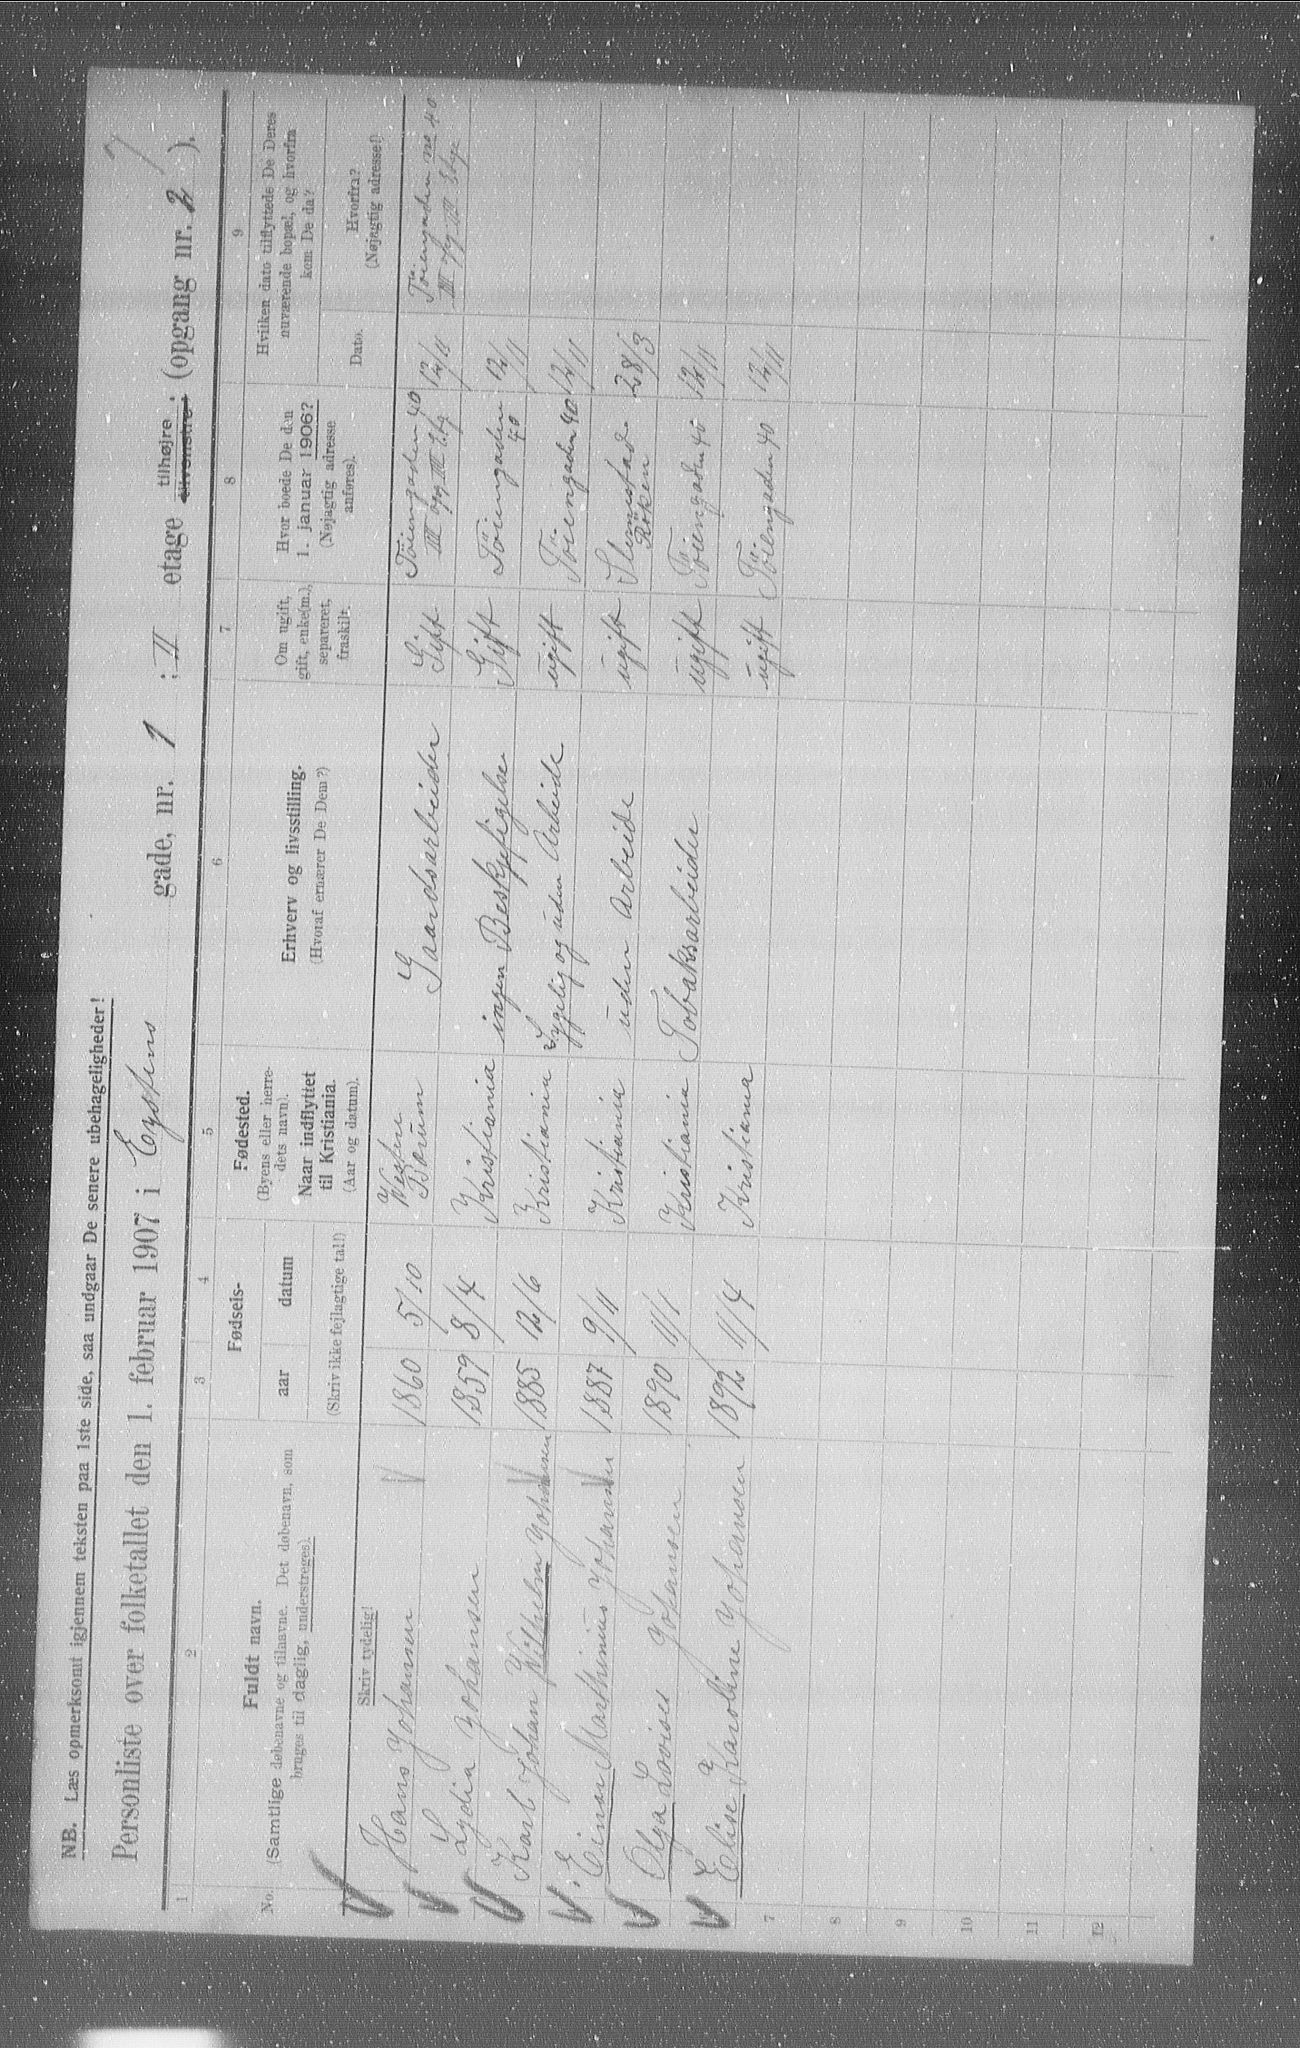 NB. Læs opmerksomt igjennem teksten paa 1ste side, saa undgaar De senere ubehageligheder!
Personliste over folketallet den 1. februar 1907 i Eysteins gade, nr. 1 ; II etage tilhøjre tilvenstre ; (opgang nr. 2 ).
1 2 3 4 5 6 7 8 9
No. Fuldt navn.
(Samtlige døbenavne og tilnavne. Det døbenavn, som
bruges til daglig, understreges).
Skriv tydelig!
Fødsels-
aar datum
(Skriv ikke fejlagtige tal!)
Fødested.
(Byens eller herre-
dets navn).
Naar indflyttet
til Kristiania.
(Aar og datum).
Erhverv og livsstilling.
(Hvoraf ernærer De Dem?)
Om ugift,
gift, enke(m.),
separeret,
fraskilt.
Hvor boede De den
1. januar 1906?
(Nøjagtig adresse
anføres).
Hvilken dato tilflyttede De Deres
nuværende bopæl, og hvorfra
kom De da?
Dato. Hvorfra?
(Nøjagtig adresse!)
Hans Johansen 1860 5/10 Vestre Bærum Gaardsarbeider Gift Töiengaden 40 III opg III Etg 12/11 Töiengaden no 40 III opg III Etage
Lydia Johansen 1859 8/4 Kristiania ingen Beskjeftigelse Gift Töiengaden 40 12/11
Karl Johan Vilhelm Johansen 1885 12/6 Kristiania Sygelig og uden Arbeide ugift Töiengaden 40 12/11
Einar Marthinius Johansen 1887 9/11 Kristiania uden Arbeide ugift Röken 28/3
Olga Lovise Johansen 1890 11/1 Kristiania Tobaksarbeider ugift Töiengaden 40 12/11
Elise Karoline Johansen 1892 11/4 Kristiania ugift Töiengaden 40 12/11
7
8
9
10
11
12